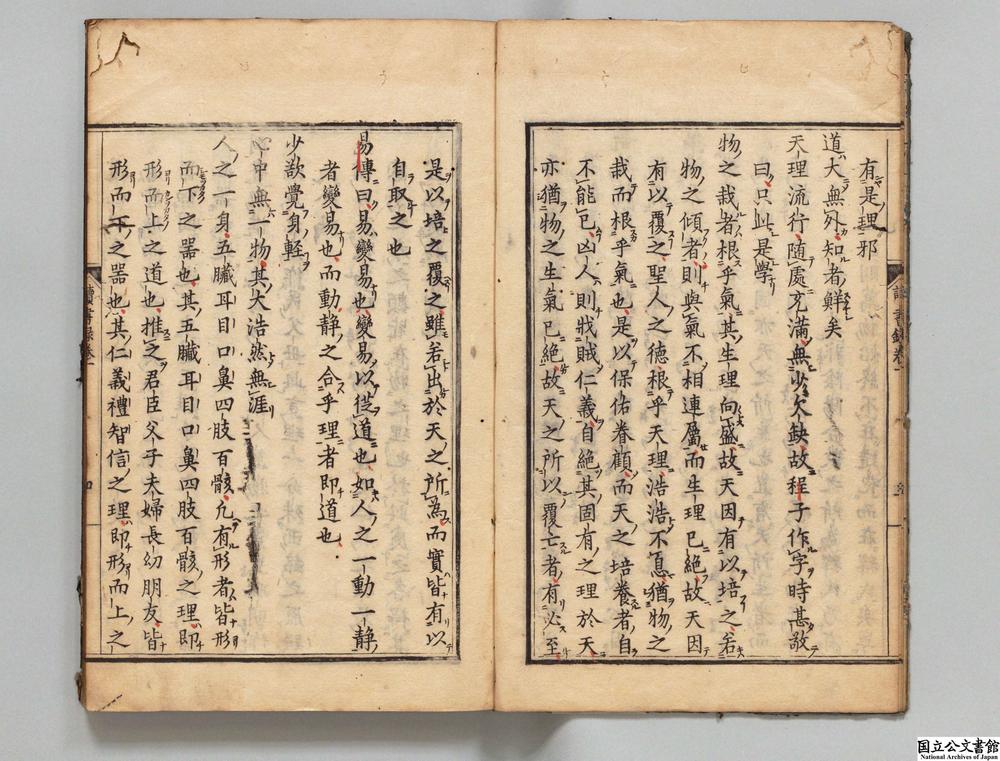 有是理邪
道大無外知者鮮矣
天理流行隨處充滿無少欠缺故程子作字時甚敬
曰只此是學
物之栽者根乎氣其生理向盛故天因有以培之若
物之傾者則與氣不相連屬而生理已絶故天因
有以覆之聖人之德根乎天理浩浩不息猶物之
栽而根乎氣也是以保佑眷顧而天之培養者自
不能已凶人則戕賊仁義自絶其固有之理於天
亦猶物之生氣已絶故天之所以覆亡者有必至
讀書錄卷一
是以培之覆之雖若出於天之所為而實皆有以
自取之也
易傳曰易變易也變易以從道也如人之一動一靜
者變易也而動靜之合乎理者即道也
少欲覺身輕
心中無一物其大浩然無涯
人之一身五臟耳目口鼻四肢百骸凢有形者皆形
而下之噐也其五臟耳目口鼻四肢百骸之理即
形而上之道也推之君臣父子夫婦長幼朋友皆
形而下之噐也其仁義禮智信之理即形而上之
讀書錄卷一
四
国立公文書館
National Archives of Japan